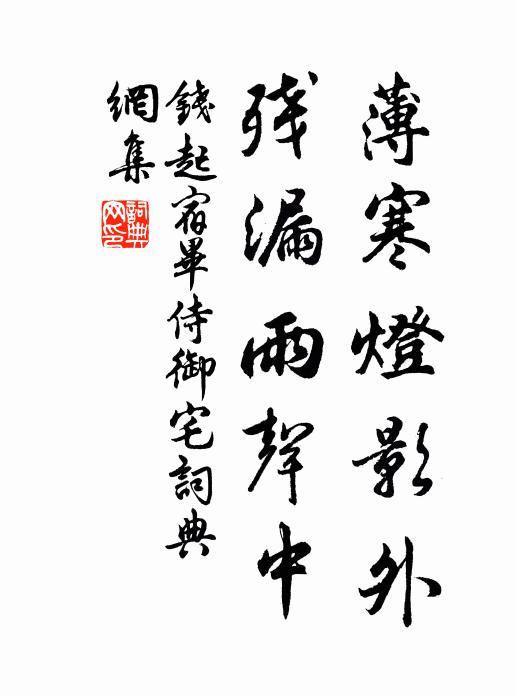 薄寒燈影外
残漏雨聲中
錢起宿畢侍御宅詞典
網集
詞典
网印